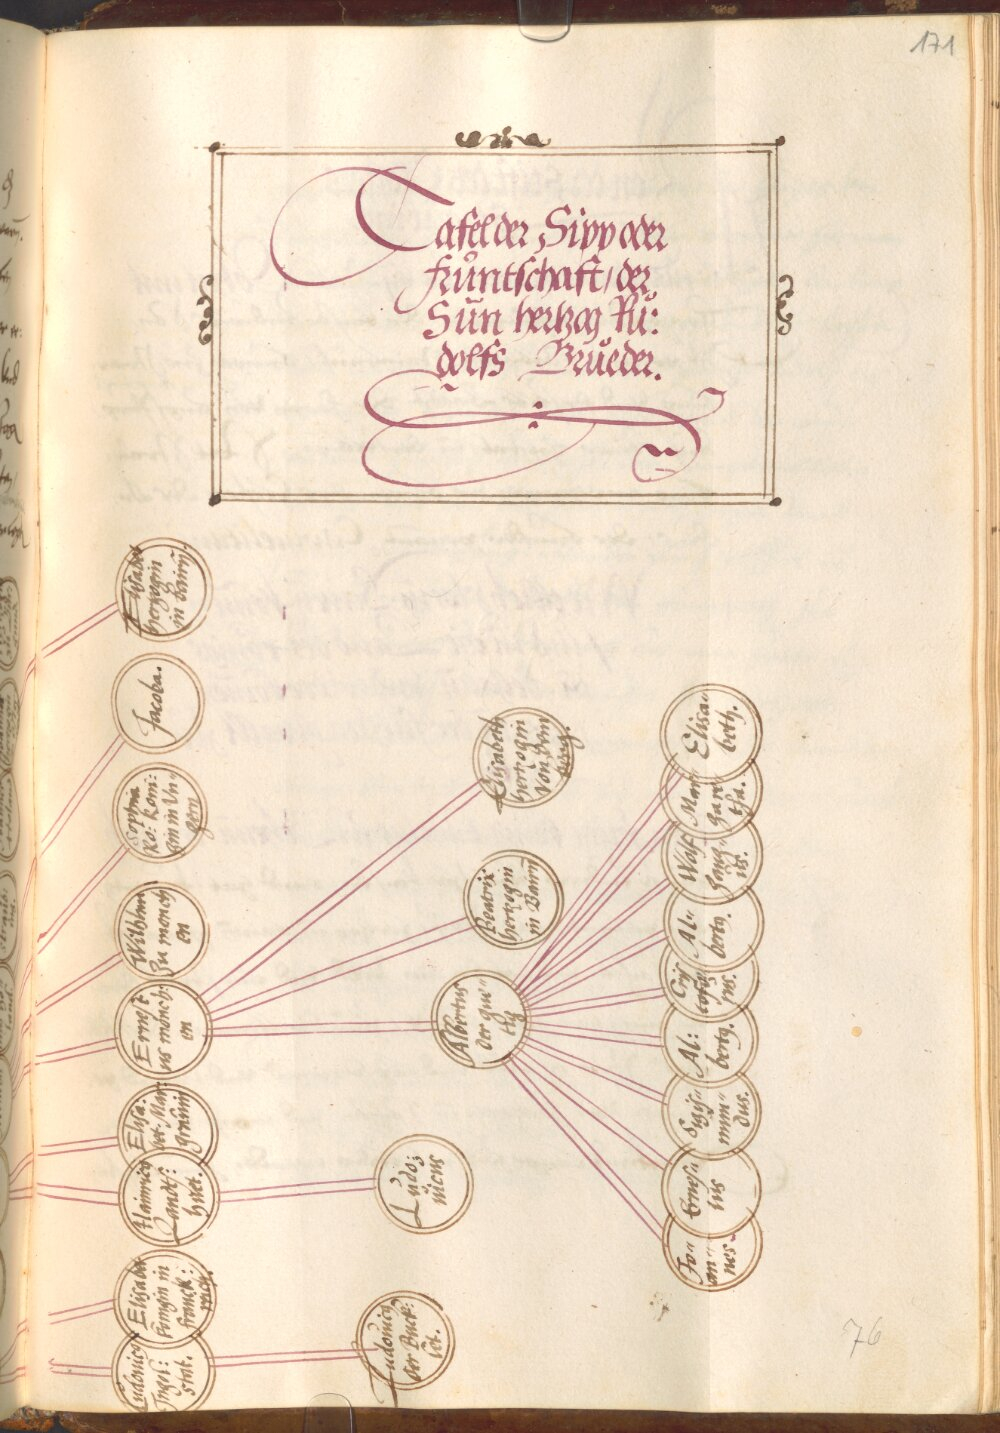 171
Tafel der Sipp oder
frůntschaft / der
Sün hertzog Rů:
dolfs Brueder.
Elisabet
hertzogin
in Bairñ.
Jacoba.
Sophia
Ko: Köni:
gin in Vn
gern
Wilhlm
Zu monch
en
Ernest
us mönch:
en
Elisa:
bet Mar:
gräuin
Hainricg
Landtß:
hůet.
Elisabet
Künigin in
franck:
reich.
Ludouicg
Ingel:
stat.
Elisabeth
hertzogin
von
berg.
Beatrix
hertzogin
in Bairñ
Albertus
der gue
tig
Ludo:
uicus
Ludouicg
der Buck:
let.
Elisa
beth.
Mar
gare
tha.
Wolf
gang
us.
Al:
bertg.
Cris
tofo
rus.
Al:
bertg.
Sigis
mun
dus.
Ernes
tus
Jo
an
nes.
76